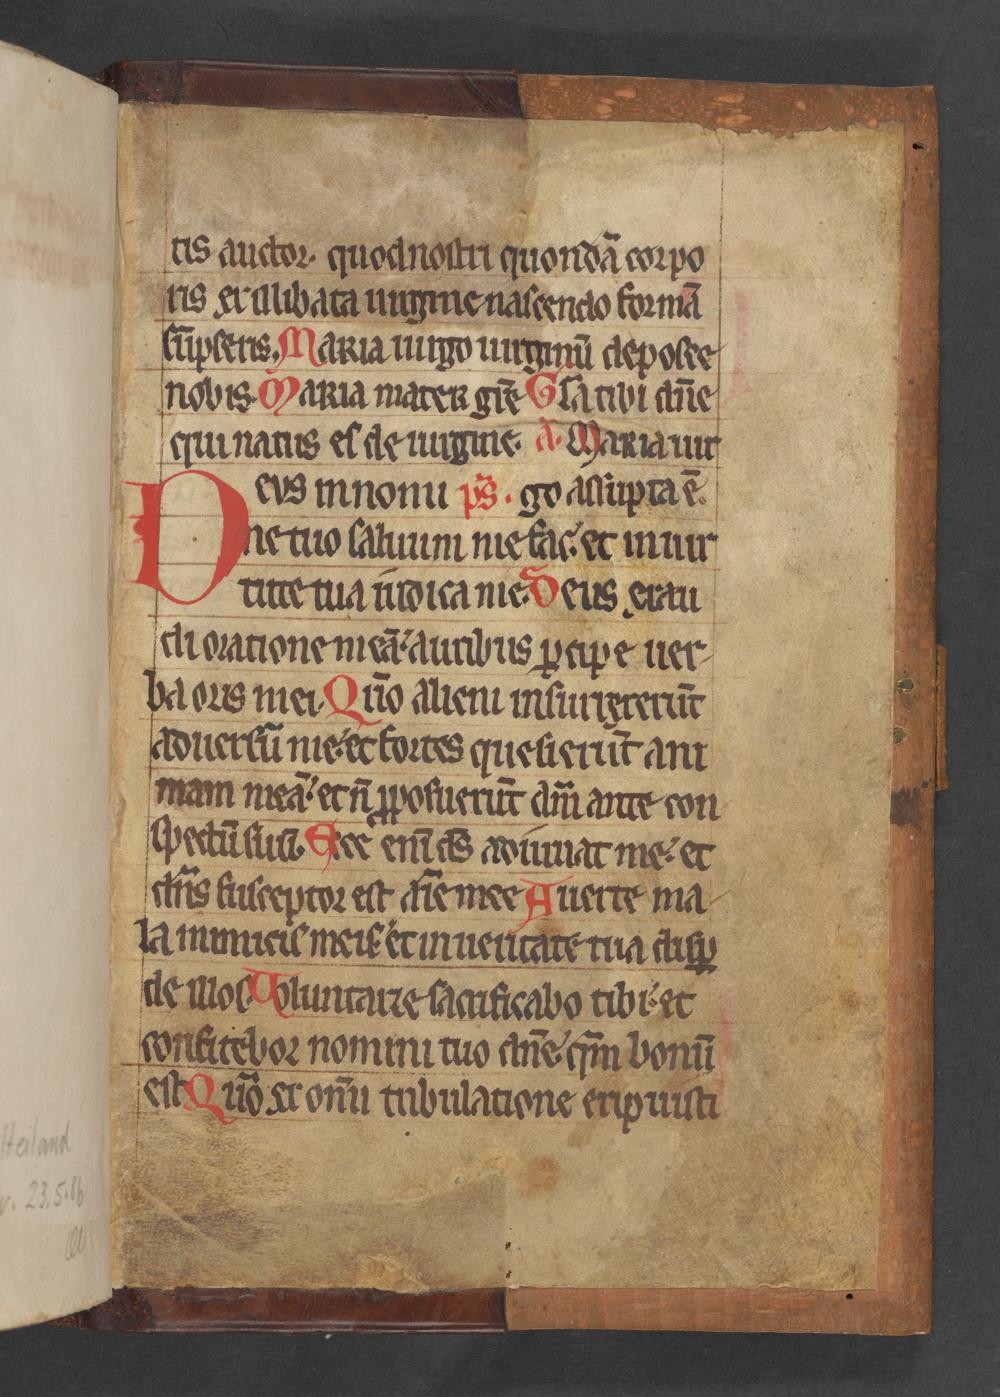 tis auctor. quod nostri quondā corpo
ris ex illibata uirgine nascendo formā
sūpseris. Maria uirgo uirginū deposce
nobis. Maria mater grē Gl̄a tibi dn̄e
qui natus es de uirgine. ā. Maria uir
Deus in nomi ps̄. go assūpta ē.
ne tuo saluum me fac: et in uir
tute tua iudica me. Deus exau
di oratione meā: auribus ꝑcipe uer
ba oris mei. Qm̄o alieni insurrexerūt
aduersū me: et fortes quesierūt ani
mam meā: et n̄ ꝓposuerūt dm̄ ante con
spectū suū. Ecce enī ds̄ adiuuat me: et
dn̄s susceptor est aīe mee Auerte ma
la inimicis meis: et in ueritate tua disꝑ
de illos. Voluntarie sacrificabo tibi: et
confitebor nomini tuo dn̄e: qm̄ bonū
est. Qm̄o ex om̄i tribulatione eripuisti
Heiland
23.5.86